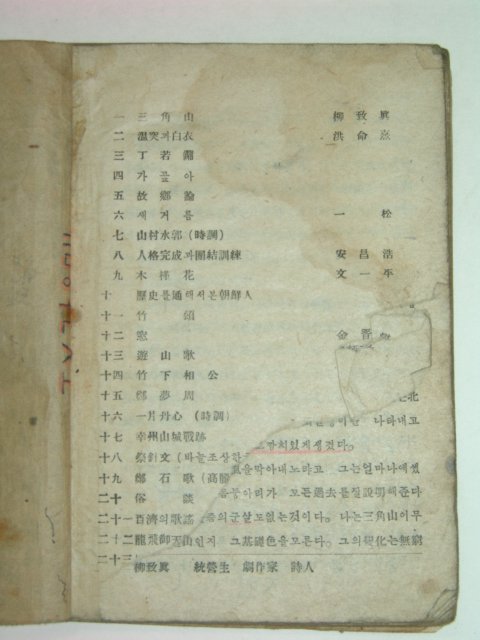 一 三角山 柳致眞
二 溫突과白衣 洪命憙
三 丁若鏞
四 가을아
五 故鄕論
六 새거름 一松
七 山村水郭(時調)
八 人格完成과團結訓練 安昌浩
九 木槿花 文一平
十 歷史를通해서본朝鮮人
十一 竹頌
十二 窓 金晋
十三 遊山歌
十四 竹下相公
十五 鄭夢周 北
十六 一片丹心(時調) 나타내고
十七 幸州山城戰跡 까치있게생겼다。
十八 祭針文(바늘조상한 을막아내노라고 그는얼마나에썼
十九 鄭石歌(高麗 등아리가 모든過去를잘說明해준다
二十 俗談
二十一 百濟의歌謠 의군살도없는것이다。나는三角山이무
二十二 龍飛御天 인지 그基礎色을모른다。그의變化는無窮
二十三
柳致眞 統營生 劇作家 時人